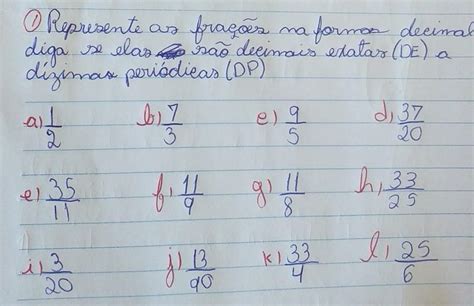 1) Represente as frações na forma decimal
diga se elas são decimais exatas (DE) a
dizimas periódicas (DP)
a) 1/2 b) 7/3 c) 9/5 d) 37/20
e) 35/11 f) 11/9 g) 11/8 h) 33/25
i) 3/20 j) 13/90 k) 33/4 l) 25/6